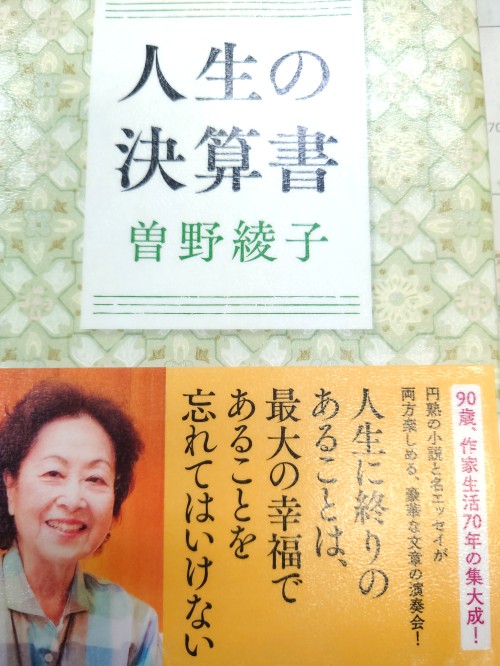 人生の
決算書
曽野綾子
90歳、作家生活70年の集大成！
円熟の小説と名エッセイが
両方楽しめる、豪華な文章の演奏会！
人生に終りの
あることは、
最大の幸福で
あることを
忘れてはいけない
70